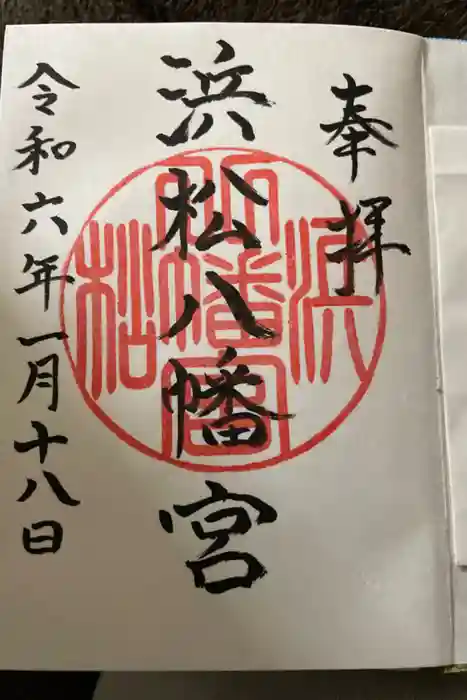 奉拝
浜松八幡宮
令和六年一月十八日
浜
八幡宮
松